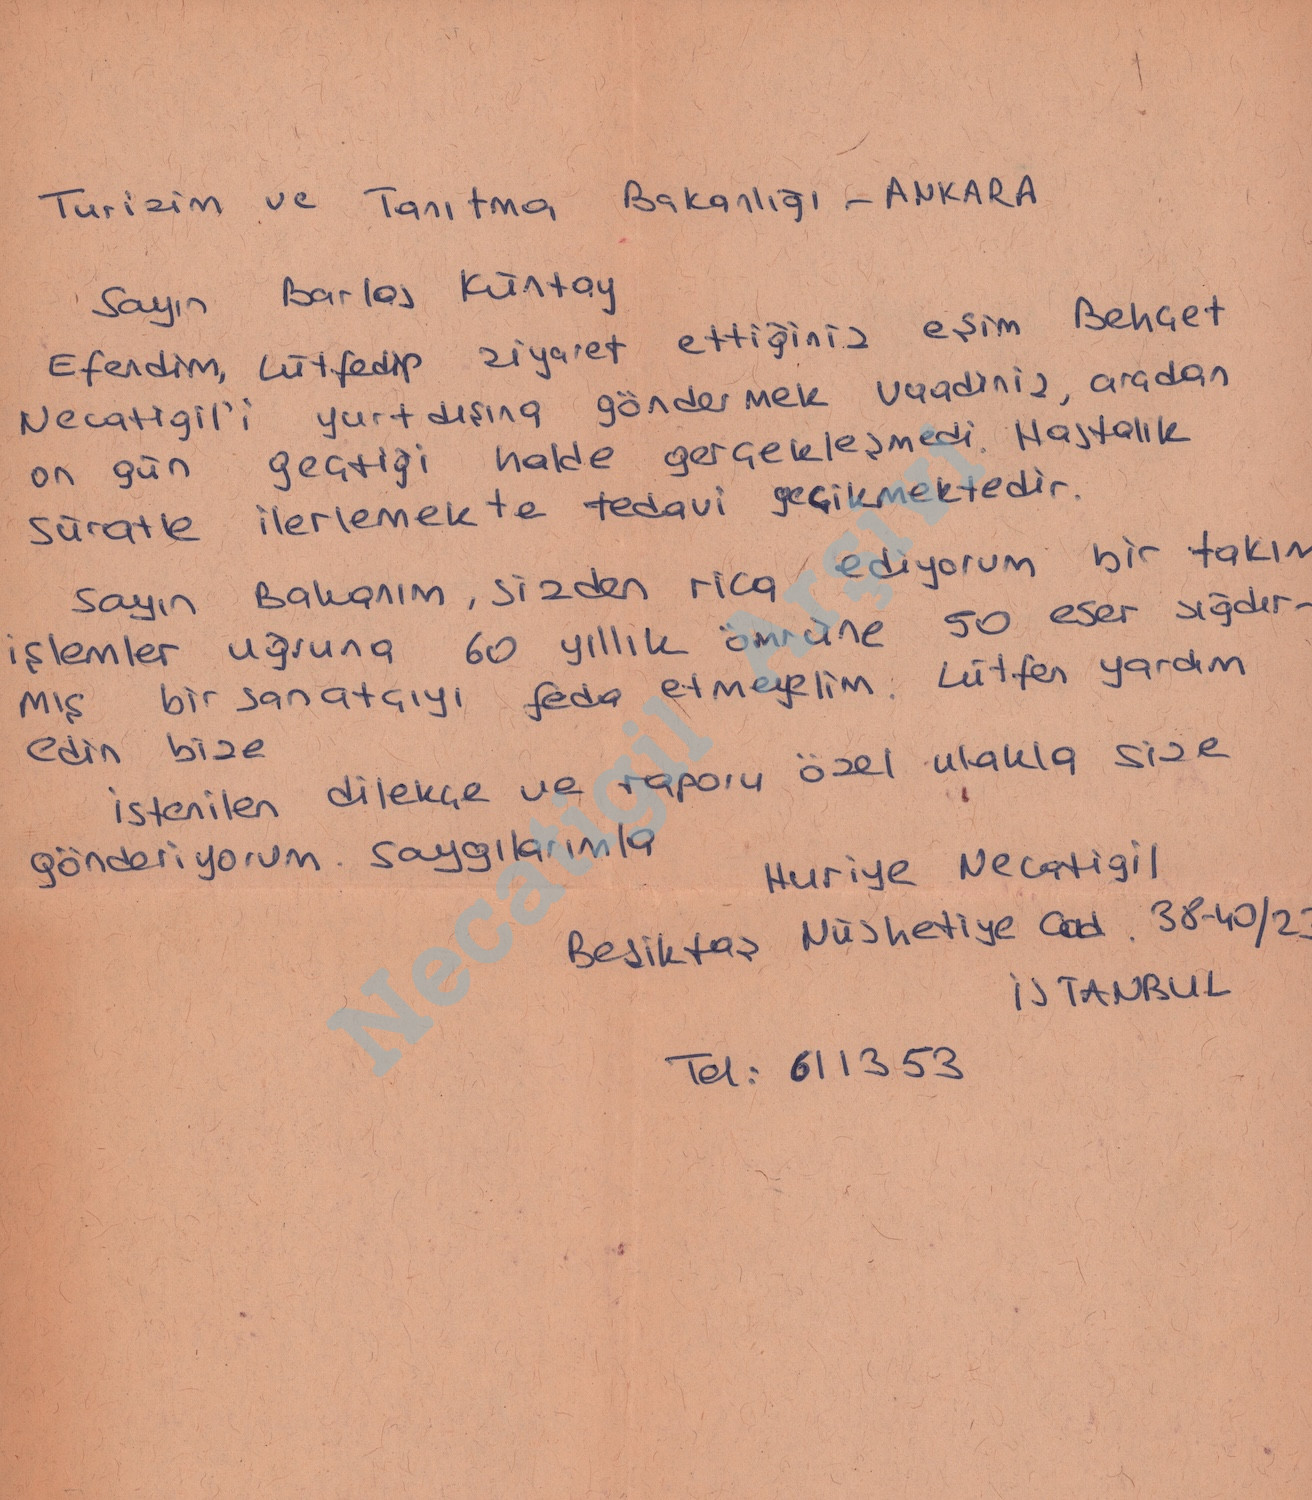 Turizim ve Tanıtma Bakanlığı - ANKARA
Sayın Barlas Küntay
Efendim, Lütfedip ziyaret ettiğiniz eşim Behçet
Necatigil'i yurtdışına göndermek vaadiniz, aradan
on gün geçtiği halde gerçekleşmedi. Hastalık
süratle ilerlemekte tedavi geçikmektedir.
Sayın Bakanım, sizden rica ediyorum bir takım
işlemler uğruna 60 yıllık ömrüne 50 eser sığdır-
mış bir sanatçıyı feda etmeyelim. Lütfen yardım
edin bize
İstenilen dilekçe ve raporu özel ulakla size
gönderiyorum. Saygılarımla
Huriye Necatigil
Beşiktaş Nüshetiye Cad. 38-40/23
İSTANBUL
Tel: 611353
Necatigil Arşivi